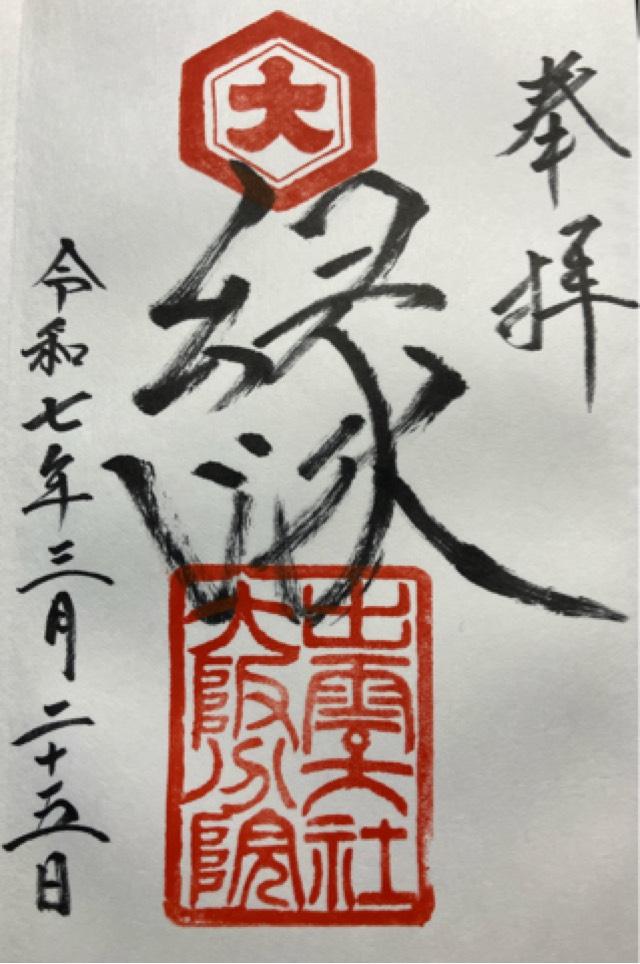 奉拝
大
縁
出雲大社
大阪分院
令和七年三月二十五日